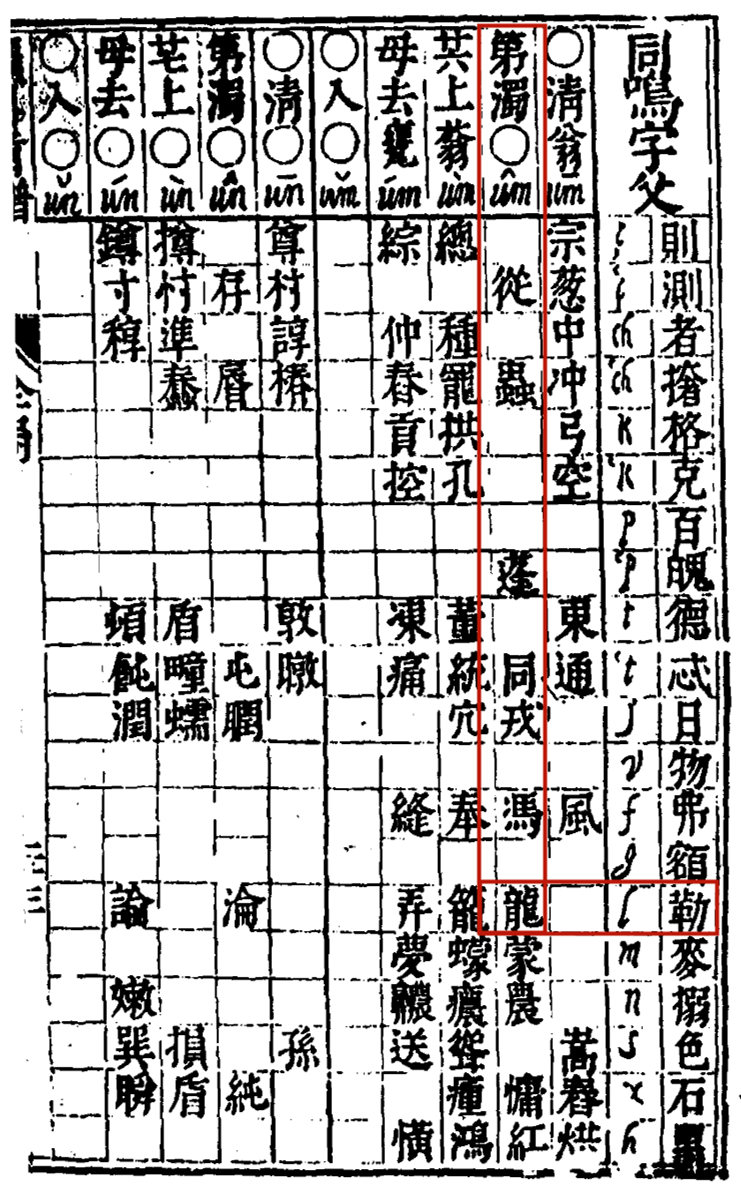 同鳴字父 則測者撦格克百魄德忒日物弗額勒麥搦色石
ç 'ç ch 'ch K 'K p 'p t 't j v f g l m n s x h
○清翁 ūm 宗葱中冲弓空東通風嵩舂烘
第濁○ ûm 從蟲蓬同戎馮龍蒙農慵紅
共上蓊 ùm 總種寵拱孔董統宂奉籠蠓癑聳瘇鴻
母去甕 úm 綜仲舂貢控凍痛縫弄夢齈送
○入○ ŭm
○清○ ūn 尊村諄椿敦暾孫
第濁○ ûn 存脣屯瞤淪純
上○ ùn 撙忖準蠢盾疃蠕損盾
母去○ ún 鐏寸稕頓飩潤論嫩巽瞬
○入○ ŭn